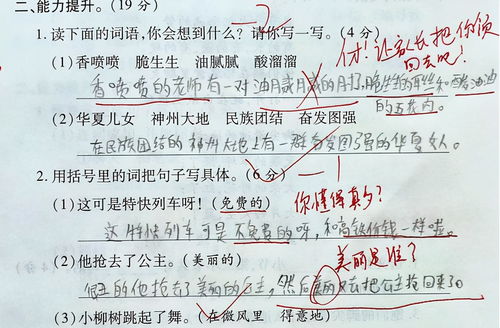 二、能力提升。(19 分)
1.读下面的词语,你会想到什么?请你写一写。(4 分)
(1)香喷喷 脆生生 油腻腻 酸溜溜
香喷喷的老师有一对油
(2)华夏儿女 神州大地 民族团结 奋发图强
在民族团结的神州大地上有一群奋发图强的华夏女人。
2.用括号里的词把句子写具体。(6 分)
你懂得真多?
(1)这可是特快列车呀!(免费的)
这特快列车可是不免费的呀,和高铁价钱一样啦。
美丽是谁?
(2)他抢去了公主。(美丽的)
的他抢去了美丽的公主,然后美丽又去把公主抢回来了
(3)小柳树跳起了舞。(在微风里 得意地)